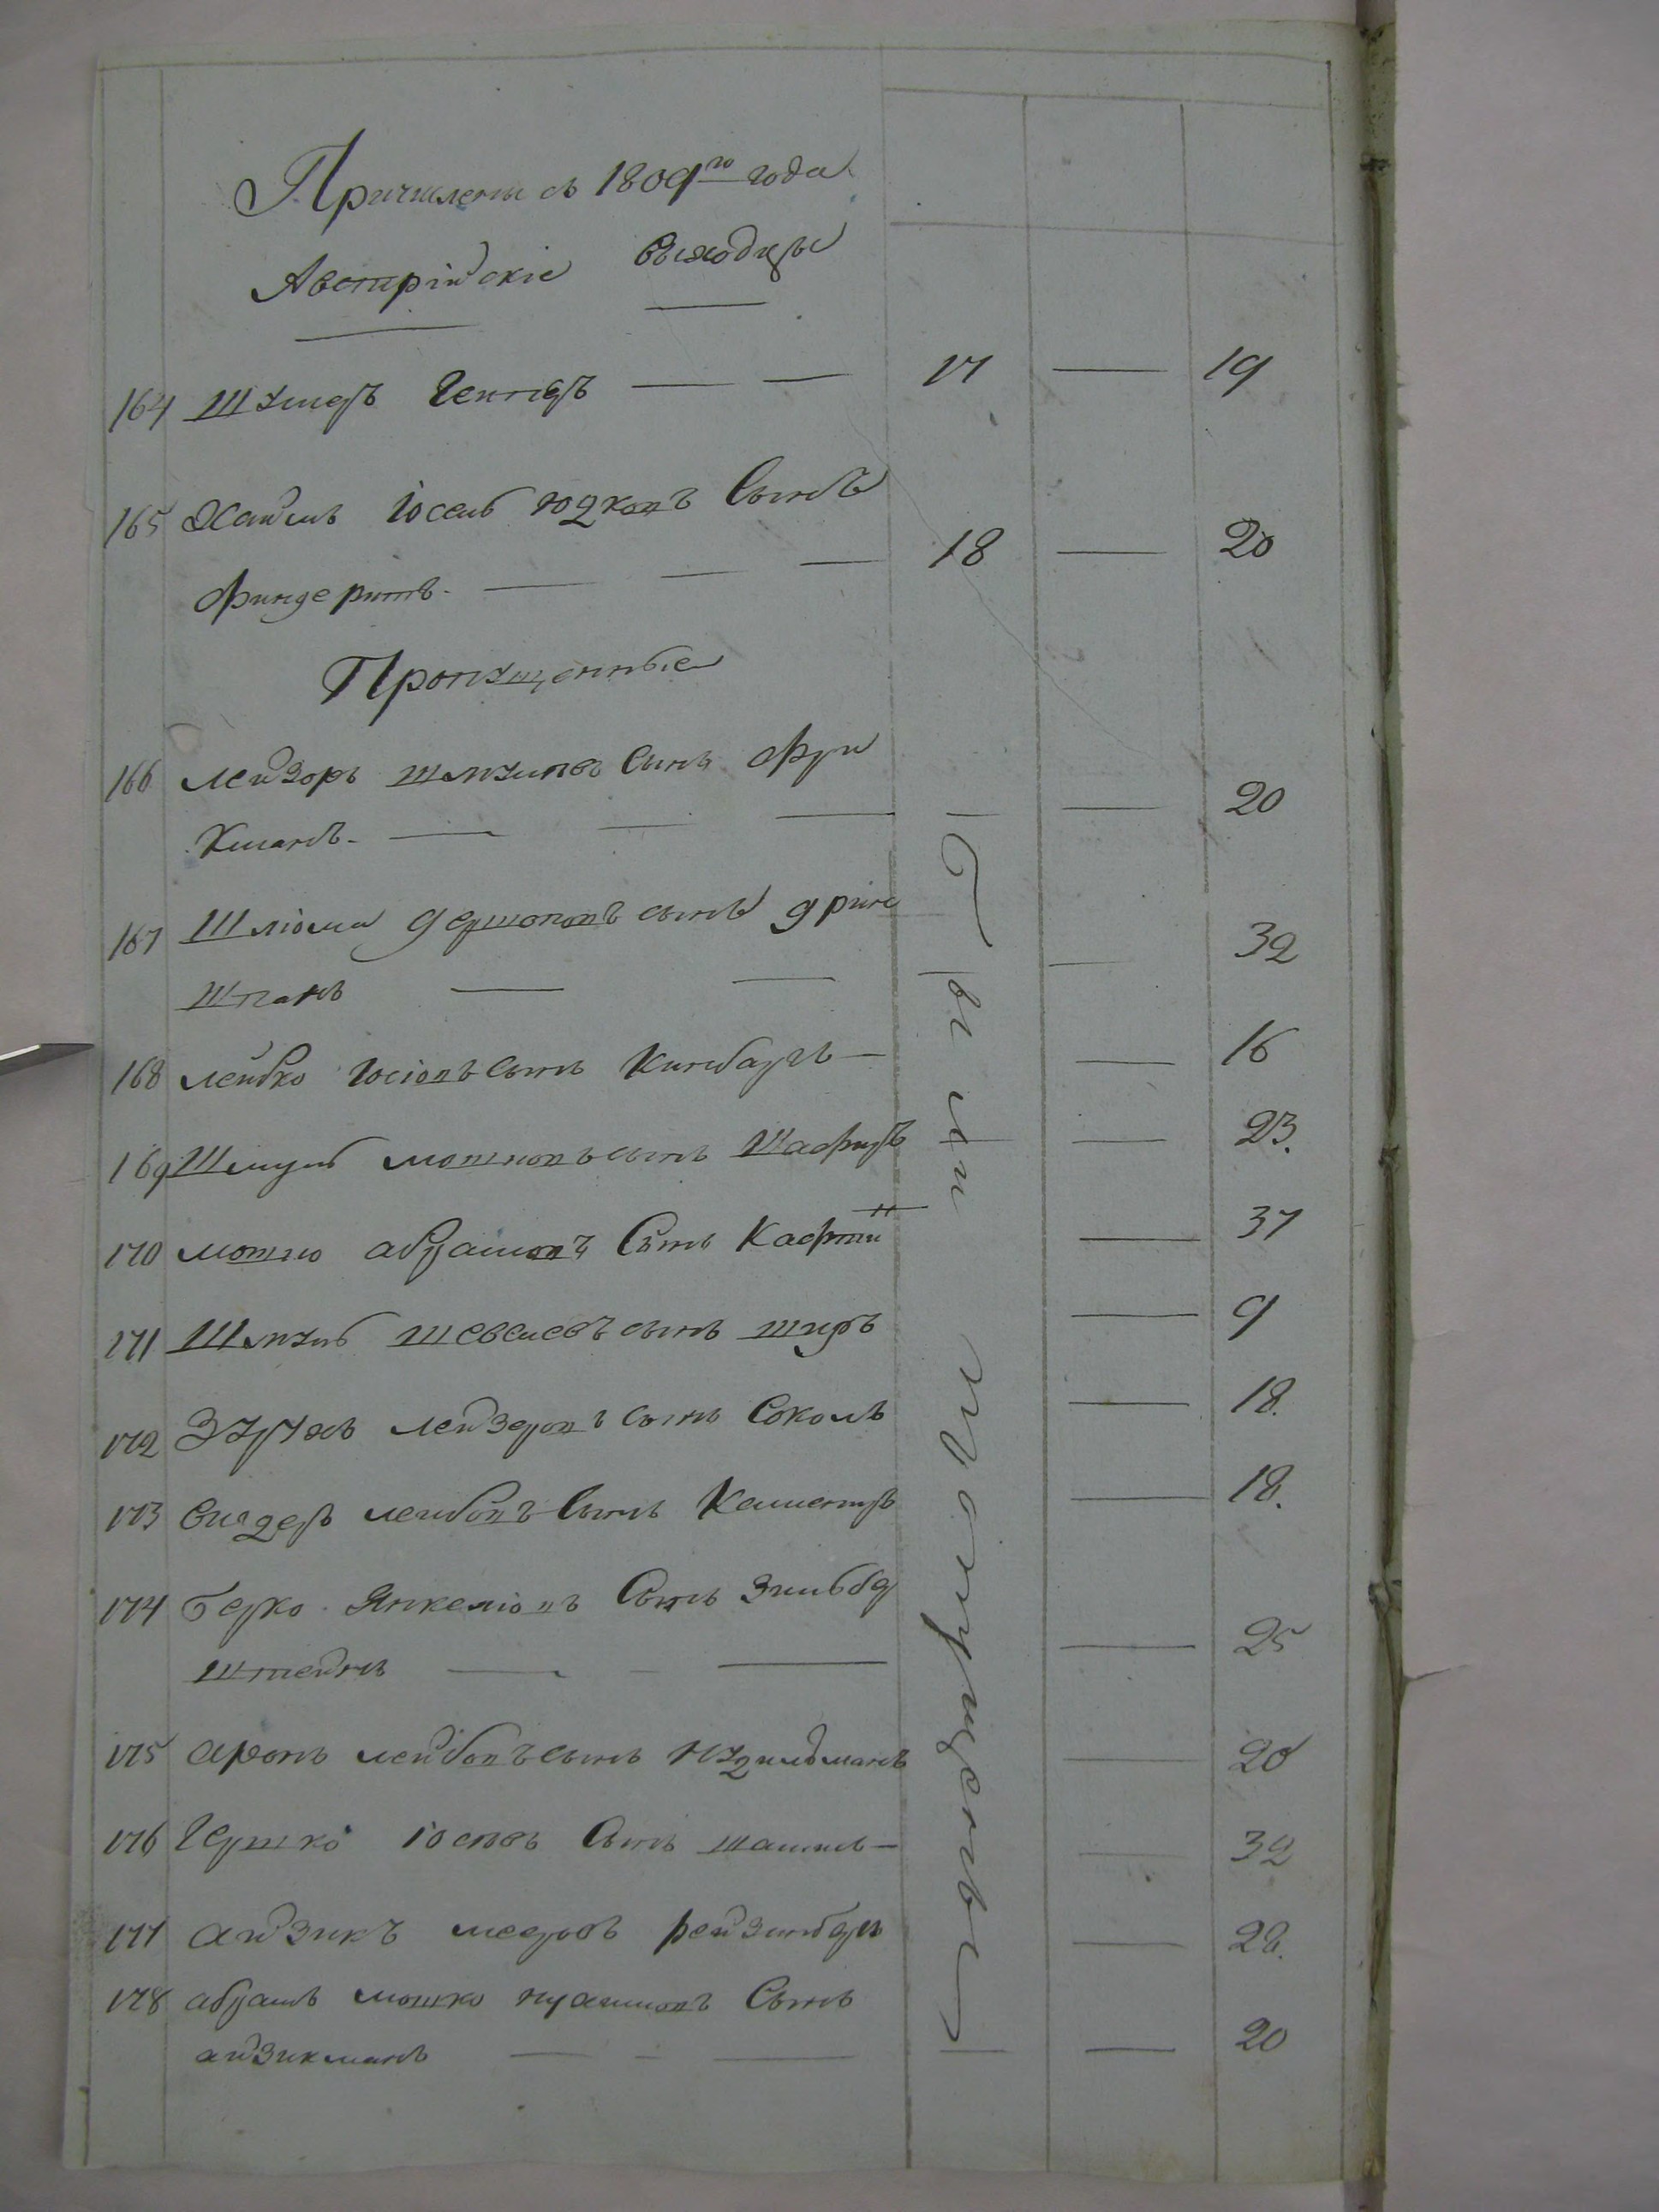 Причислены съ 1809го года
Австрійскіе выходцы
164 Шмуль Гентеръ — — 17 — 19
165 Хаимъ Іосель Юдковъ Сынъ
Финдеритъ — — — 18 — 20
Пропущенные
166 Лейзоръ Шмулевъ Сынъ Фур
Кманъ — — — — 20
167 Шліома Гершоновъ сынъ Грин
Шпанъ — — — 32
168 Лейбко Іосіовъ Сынъ Кимбаръ — — 16
169 Шмуль Мошковъ сынъ Шафиръ — 23.
170 Мошко Абрамовъ Сынъ Кафтан — 37
171 Шмуль Шевелевъ сынъ Ширъ — 9
172 Зурухъ Лейзеровъ Сынъ Соколъ — 18.
173 Сендеръ Лейбовъ Сынъ Камен — 18.
174 Берко Янкеліовъ Сынъ Зильбер
Штейнъ — — — 25
175 Аронъ Лейбовъ сынъ Нудильманъ — 20
176 Гершко Іосевъ Сынъ — — 32
177 Айзикъ Мееровъ Рейзинберъ — 22.
178 Абрамъ Мошко Сынъ
Айзикманъ — — — — 20
Были пропущены